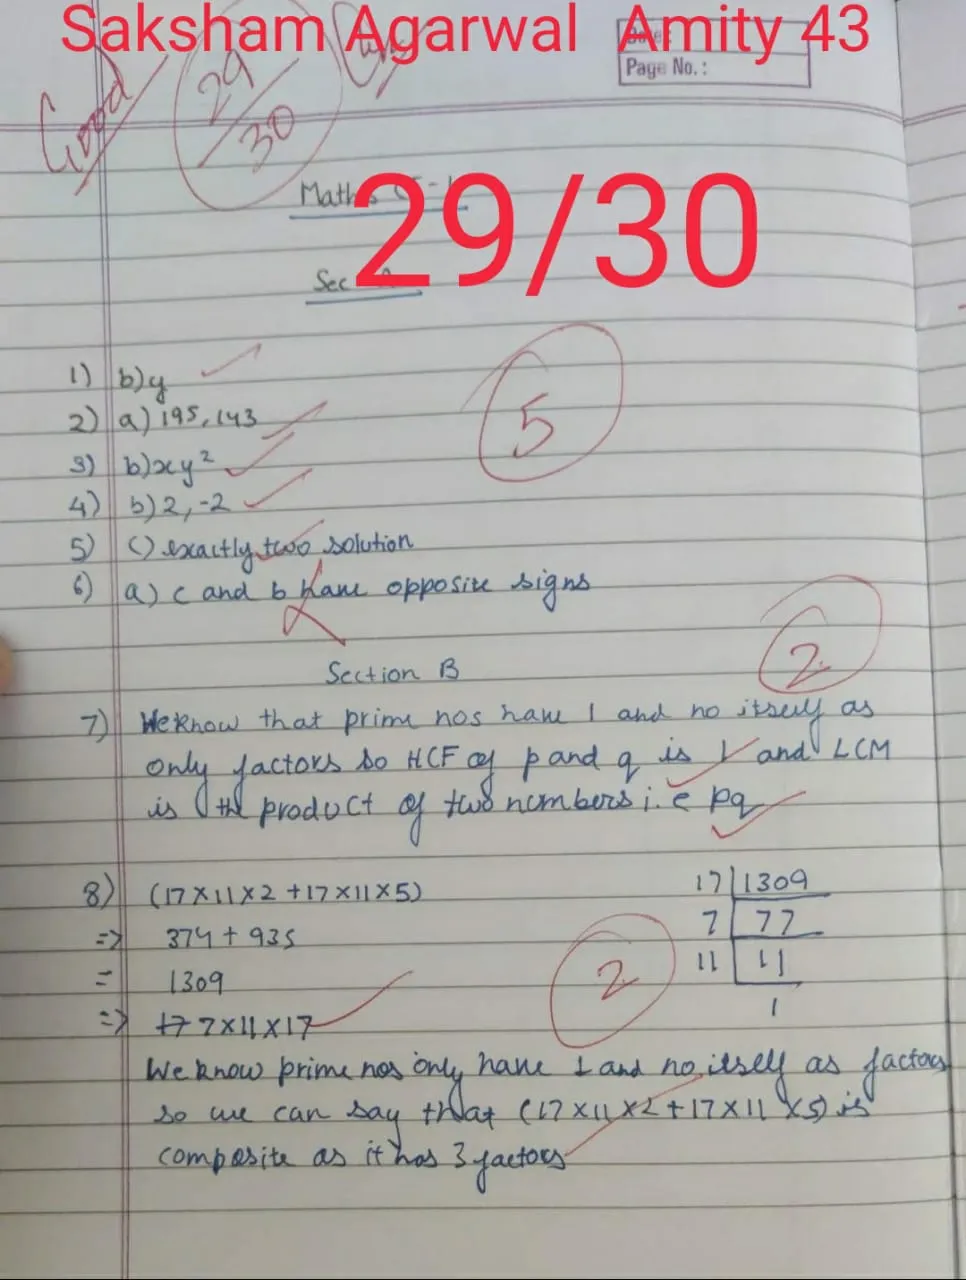 Saksham Agarwal Amity 43
Page No.:
Good
29/30
Maths
29/30
Sec
1) b) y
2) a) 195, 143
3) b) xy²
4) b) 2, -2
5) c) exactly two solution
6) a) c and b have opposite signs
5
Section B
2
7) We know that prime nos have 1 and no itself as
only factors so HCF of p and q is 1 and LCM
is the product of two numbers i.e pq
8) (17×11×2 +17×11×5)
=> 374 + 935
= 1309
=> 7×11×17
17 1309
7 77
11 11
1
2
We know prime nos only have 1 and no itself as factors
so we can say that (17×11×2+17×11×5) is
composite as it has 3 factors